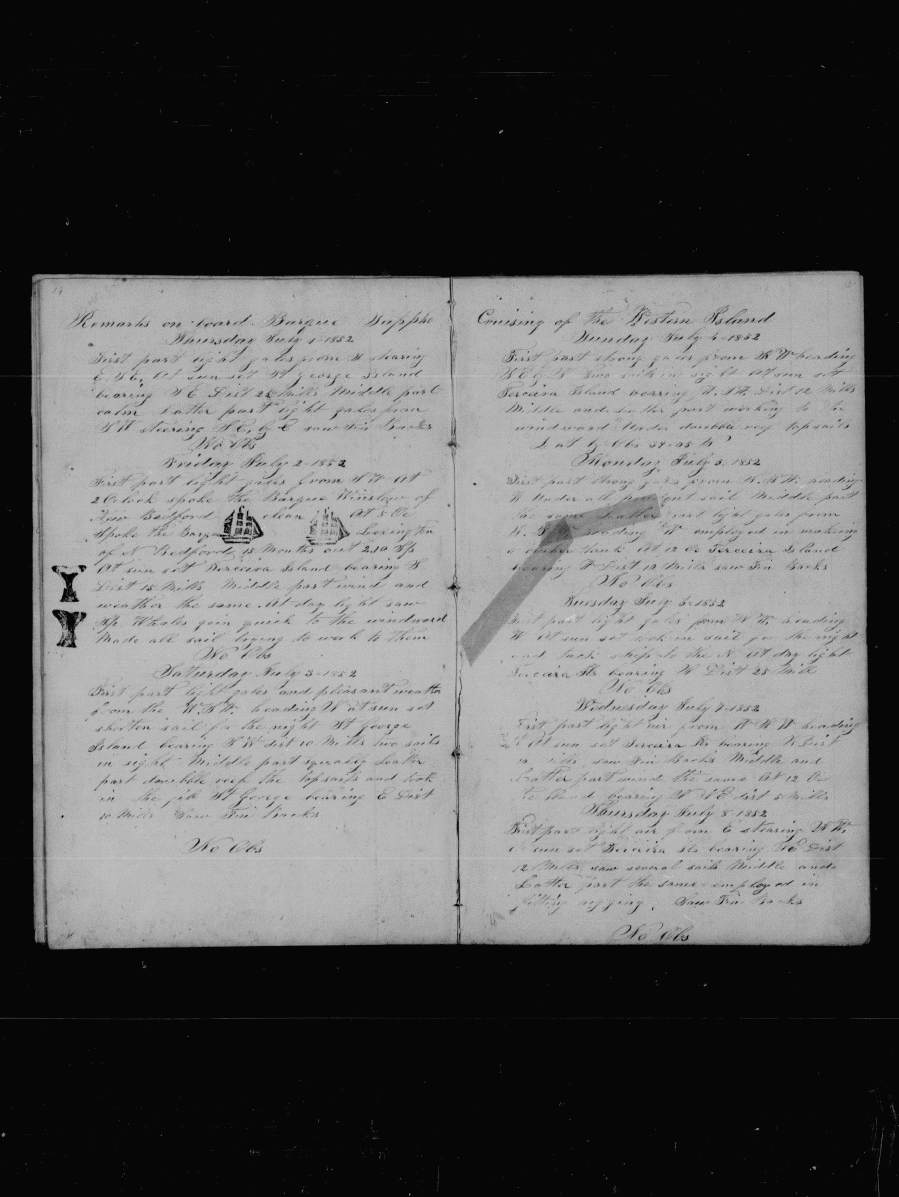 Remarks on board Barque Sappho
Thursday July 1-1852
First part light gales from S stearing
E. S E. At sun set St george Island
bearing S E Dist 25 Mills Middle part
calm Latter part light gales from
S W steering S E. by E saw Fin Backs
No Obs
Friday July 2-1852
First part light gales from S W At
2 Oclock spoke the Barque Winslow of
New Bedford clean At 5 Oc
Spoke the Barque Lexington
of N Bedford 13 Months out 210 Sp
At sun set Terceira Island bearing W
Dist 15 Mills Middle part wind and
weather the same At day light saw
Sp. Whales goin quick to the windward
Made all sail trying to work to them
No Obs
Saturday July 3-1852
First part light gales and pleasant weather
from the W.S.W. heading W at sun set
shorten sail for the night St George
Island bearing S W dist 10 Mills two sails
in sight Middle part squaly Latter
part double reef the topsails and took
in the jib St George bearing E Dist
10 Mills Saw Fin Backs
No Obs
Cruising of the Western Island
Sunday July 4-1852
First part strong gales from W heading
in sight At sun set
Terceira Island bearing Dist 12 Mills
Middle and Latter part working to the
windward Under double reef topsails
Lat by Obs
Monday July 5-1852
First part strong gales from heading
Under all sail Middle part
the same Latter part light gales from
heading W employed in making
a tank At 12 Oc Terceira Island
bearing Dist 12 Mills saw Fin Backs
No Obs
Tuesday July 6-1852
First part light gales from heading
At sun set took in sail for the night
and tack ship to the N. At day light
Terceira Is bearing W Dist 25 Mills
No Obs
Wednesday July 7-1852
First part light air from heading
At sun set Terceira Is bearing Dist
saw Fin Backs Middle and
Latter part wind the same At 12 Oc
bearing dist 5 Mills
Thursday July 8-1852
First part light air from E stearing
At sun set Terceira Is bearing Dist
12 Mills saw several sails Middle and
Latter part the same employed in
fitting rigging. Saw Fin Backs
No Obs